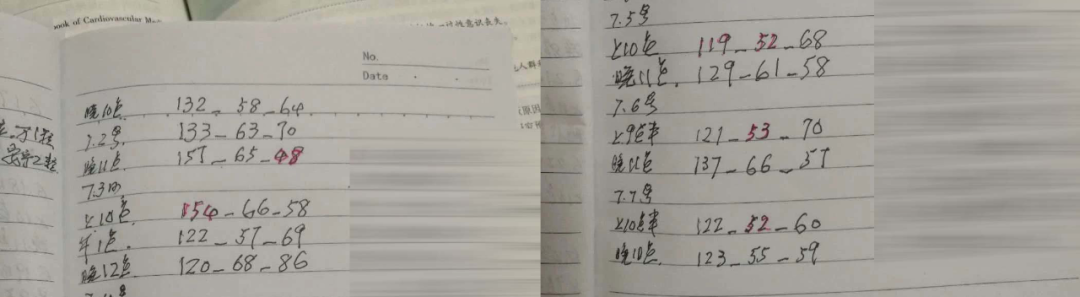 ook of Cardiovascular Me
No.
Date
晚10点 132 - 58 - 64
7.2号 133 - 63 - 70
晚11点 157 - 65 - 48
7.3号
上10点 154 - 66 - 58
午1点 122 - 57 - 69
晚12点 120 - 68 - 86
7.5号
上10点 119 - 52 - 68
晚11点 129 - 61 - 58
7.6号
上9点半 121 - 53 - 70
晚11点 137 - 66 - 57
7.7号
上10点半 122 - 52 - 60
晚10点 123 - 55 - 59